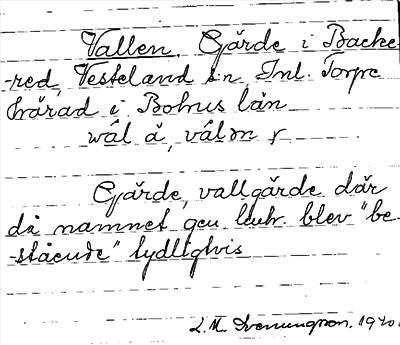 Vallen, Gärde i Backe-
-red, Vesteland sn Inl. Torpe
härad i Bohus län
wál å, válǝn f

Gärde, vallgärde där
då namnet gen blev "be-
-stående" tydligtvis
1940.